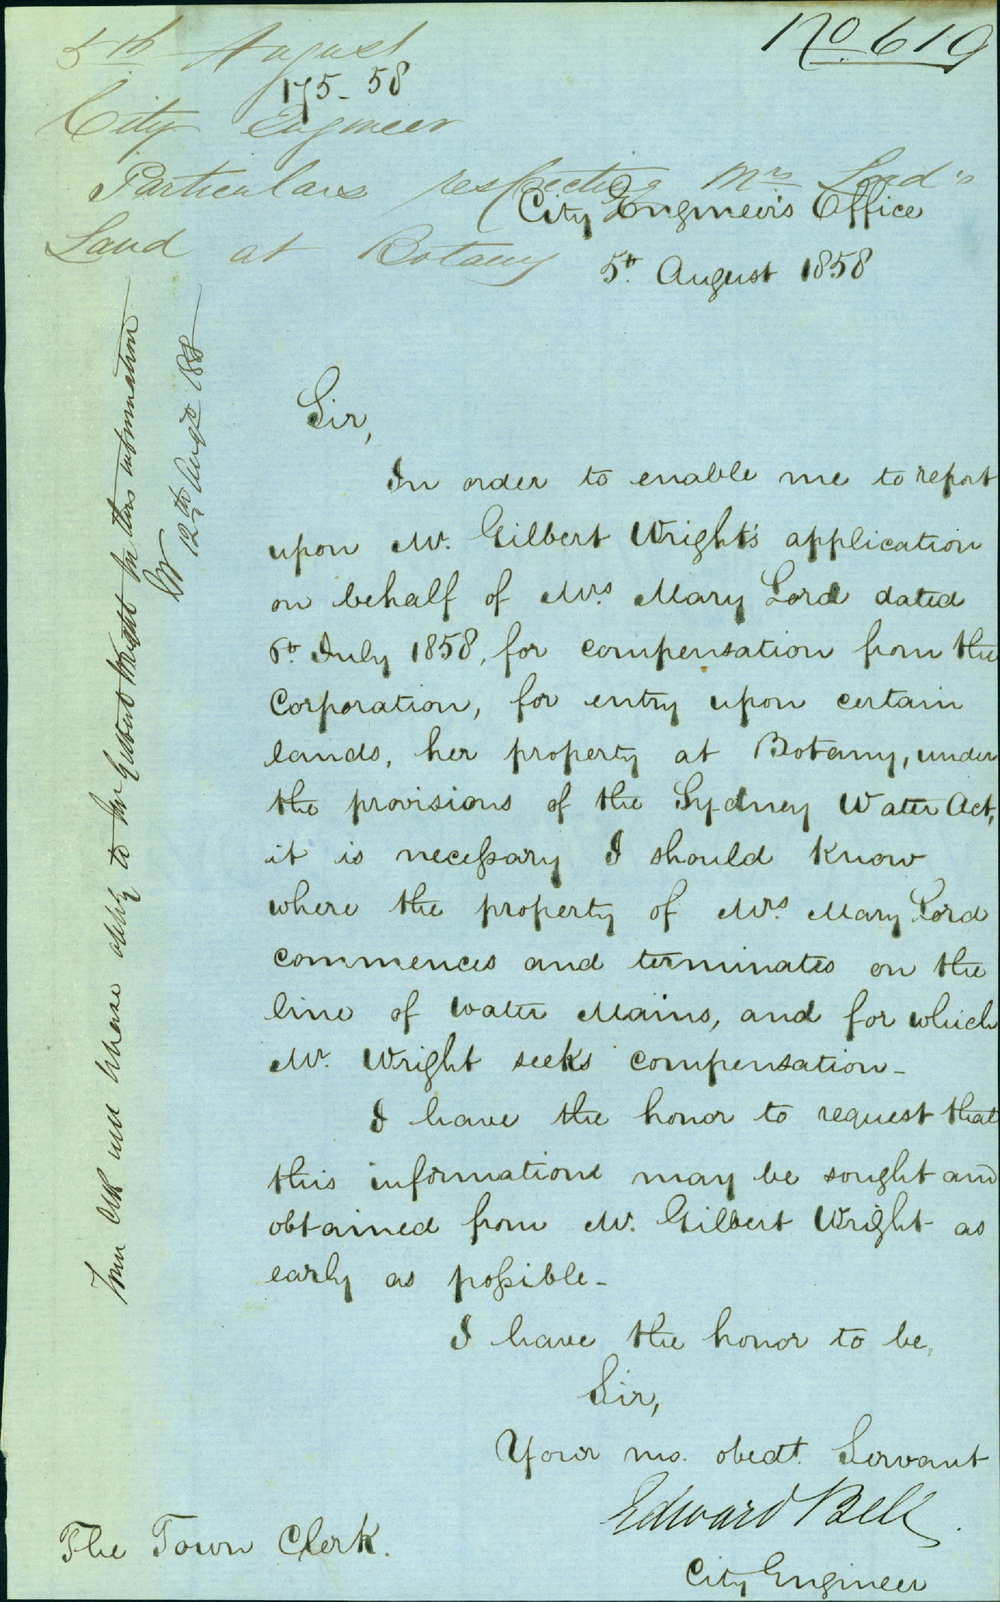 No 619
5th August
175-58
City Engineer
Particulars respecting Mrs Lord's
Land at Botany
City Engineer's Office
5th August 1858
Sir,
In order to enable me to report
upon Mr. Gilbert Wright's application
on behalf of Mrs. Mary Lord dated
6th July 1858, for compensation from the
Corporation, for entry upon certain
lands, her property at Botany, under
the provisions of the Sydney Water Act,
it is necessary I should know
where the property of Mrs. Mary Lord
commences and terminates on the
line of Water Mains, and for which
Mr. Wright seeks compensation-
I have the honor to request that
this information may be sought and
obtained from Mr. Gilbert Wright as
early as possible-
I have the honor to be,
Sir,
Your mo. obedt. Servant
Edward Bell.
City Engineer
The Town Clerk.
Town Clk will please apply to Mr Gilbert Wright for this information
12th Augt 1858